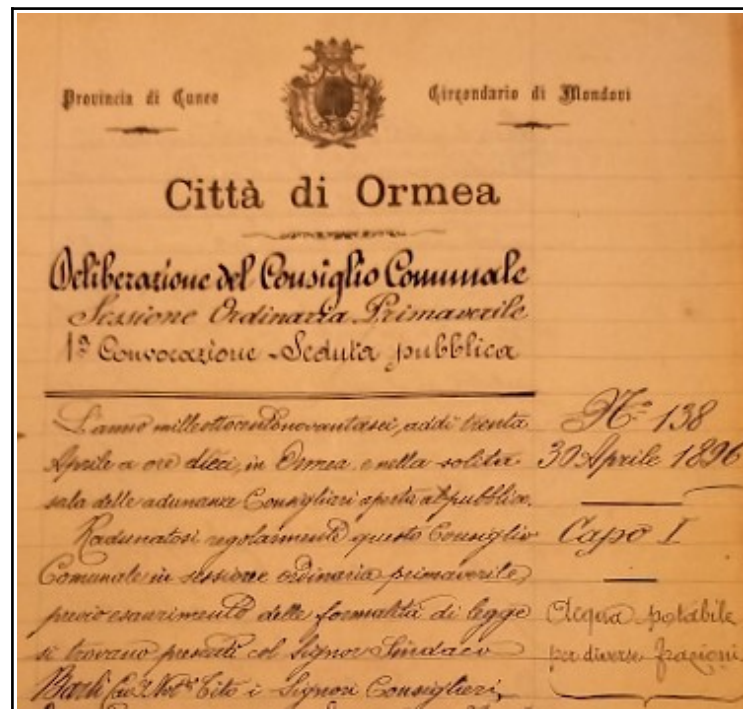 Provincia di Cuneo
Circondario di Mondovì
Città di Ormea
Deliberazione del Consiglio Comunale
Sessione Ordinaria Primaverile
1ª Convocazione - Seduta pubblica
L'anno milleottocentonovantasei, addì trenta
Aprile a ore dieci, in Ormea e nella solita
sala delle adunanze Consigliari aperta al pubblico.
Radunatosi regolarmente questo Consiglio
Comunale in sessione ordinaria primaverile,
previo esaurimento delle formalità di legge
si trovano presenti col Signor Sindaco
Tito i Signori Consiglieri,
Nº 138
30 Aprile 1896
Capo I
Acqua potabile
per diverse frazioni